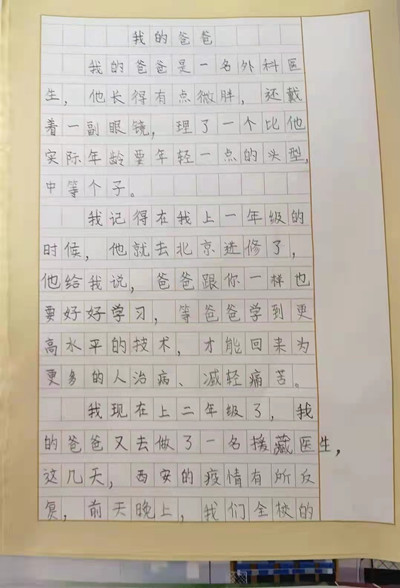 我的爸爸
我的爸爸是一名外科医
生，他长得有点微胖，还戴
着一副眼镜，理了一个比他
实际年龄要年轻一点的头型，
中等个子。
我记得在我上一年级的
时候，他就去北京进修了，
他给我说，爸爸跟你一样也
要好好学习，等爸爸学到更
高水平的技术，才能回来为
更多的人治病、减轻痛苦。
我现在上二年级了，我
的爸爸又去做了一名援藏医生，
这几天，西安的疫情有所反
复，前天晚上，我们全校的